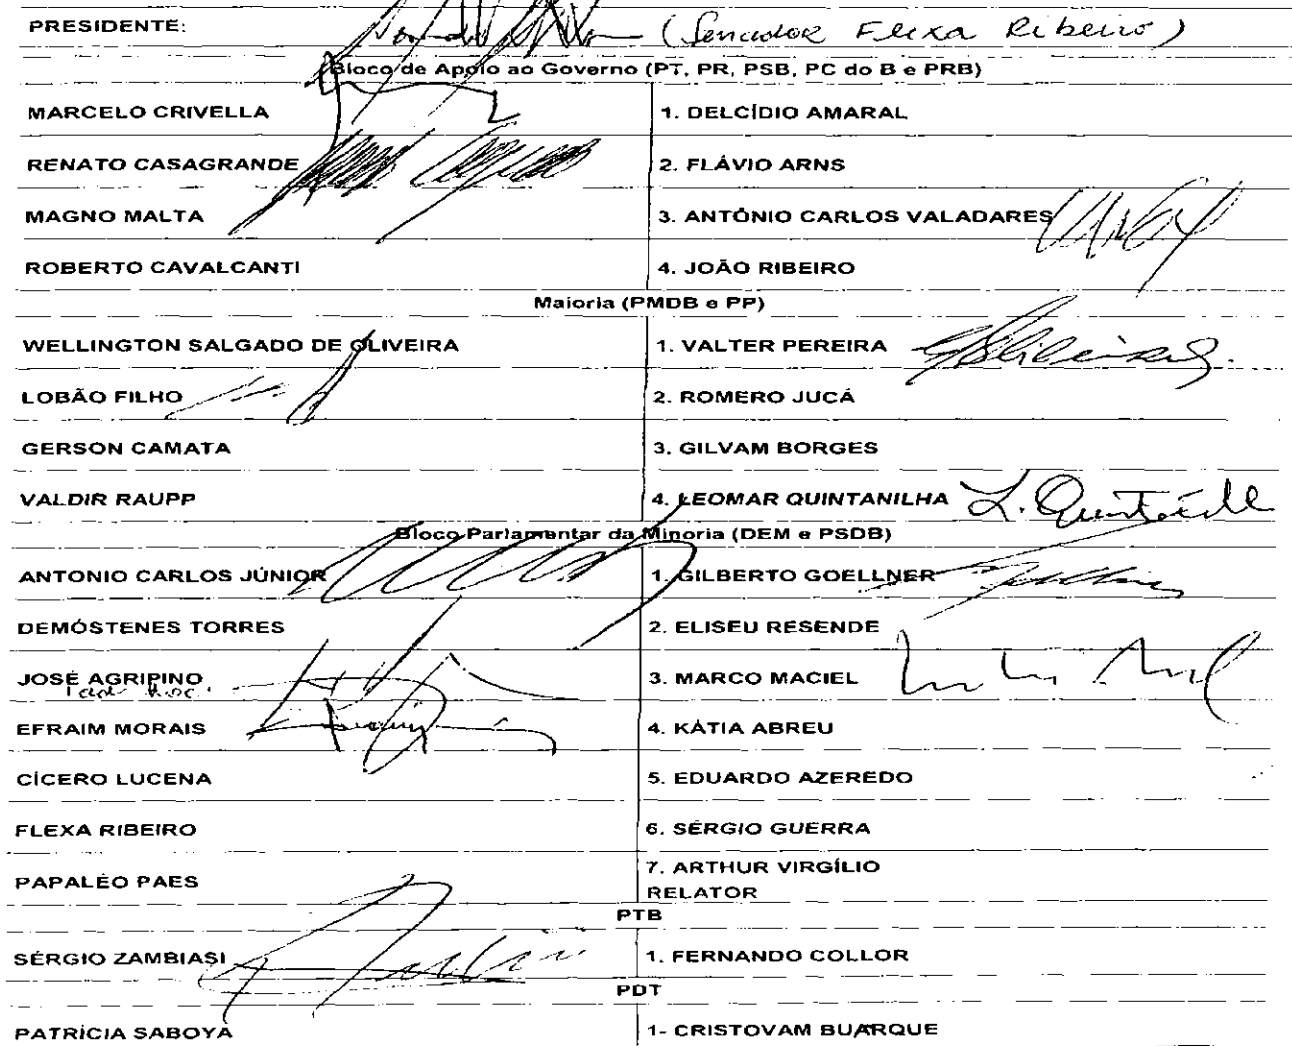 PRESIDENTE: (Senador Flexa Ribeiro)
Bloco de Apoio ao Governo (PT, PR, PSB, PC do B e PRB)
MARCELO CRIVELLA 1. DELCÍDIO AMARAL
RENATO CASAGRANDE 2. FLÁVIO ARNS
MAGNO MALTA 3. ANTÔNIO CARLOS VALADARES
ROBERTO CAVALCANTI 4. JOÃO RIBEIRO
Maioria (PMDB e PP)
WELLINGTON SALGADO DE OLIVEIRA 1. VALTER PEREIRA
LOBÃO FILHO 2. ROMERO JUCÁ
GERSON CAMATA 3. GILVAM BORGES
VALDIR RAUPP 4. LEOMAR QUINTANILHA
Bloco Parlamentar da Minoria (DEM e PSDB)
ANTONIO CARLOS JÚNIOR 1. GILBERTO GOELLNER
DEMÓSTENES TORRES 2. ELISEU RESENDE
JOSÉ AGRIPINO 3. MARCO MACIEL
EFRAIM MORAIS 4. KÁTIA ABREU
CÍCERO LUCENA 5. EDUARDO AZEREDO
FLEXA RIBEIRO 6. SÉRGIO GUERRA
PAPALÉO PAES 7. ARTHUR VIRGÍLIO
RELATOR
PTB
SÉRGIO ZAMBIASI 1. FERNANDO COLLOR
PDT
PATRÍCIA SABOYA 1- CRISTOVAM BUARQUE